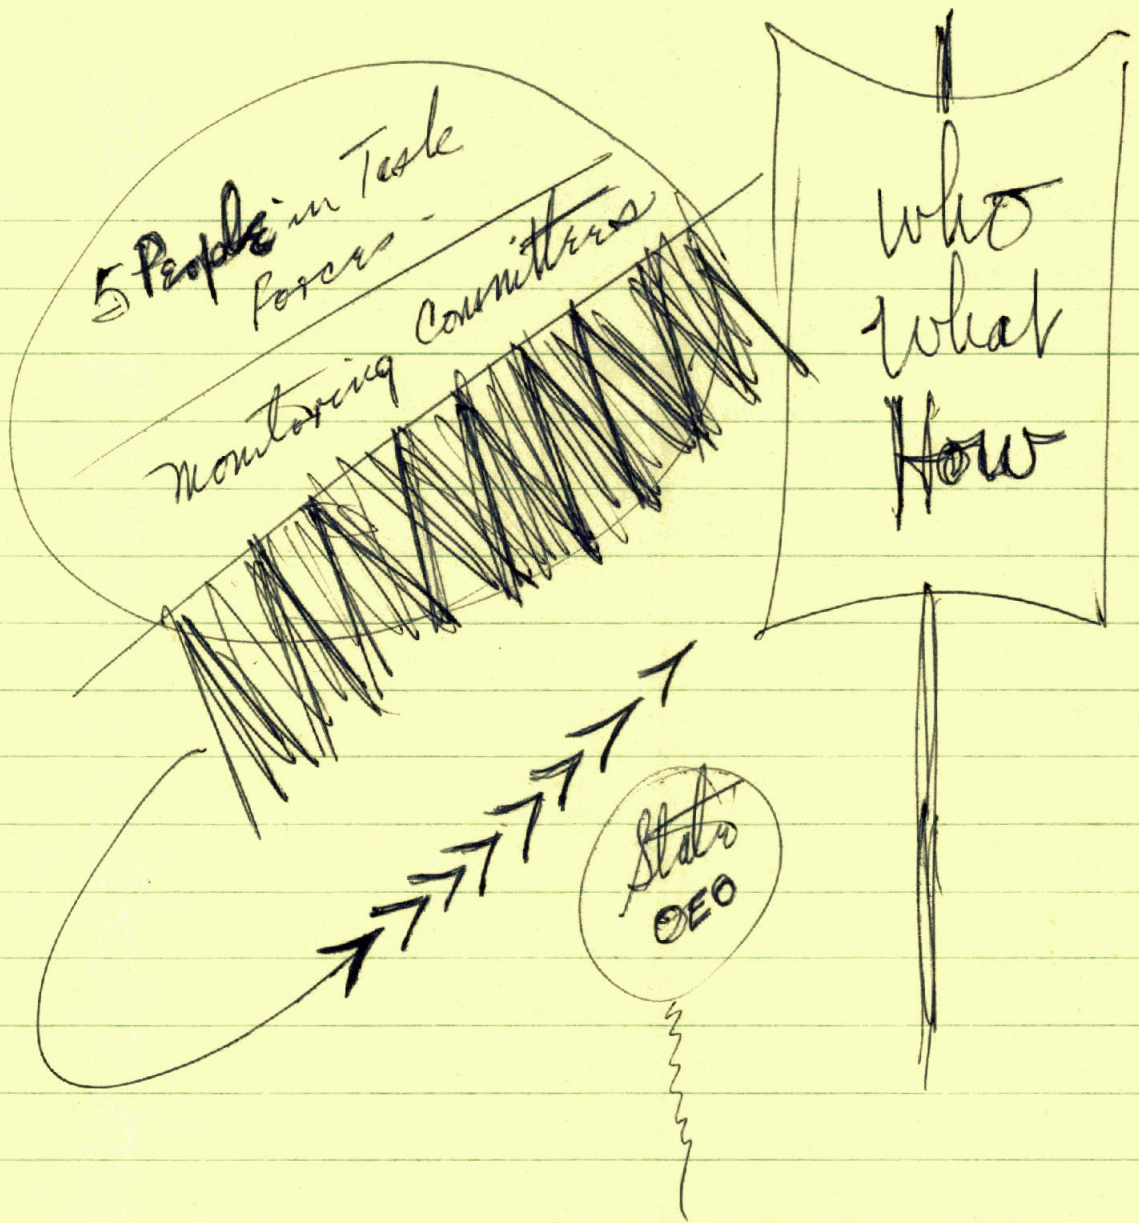 5 People in Task
Forces
Monitoring Committees
Who
What
How
State
OEO